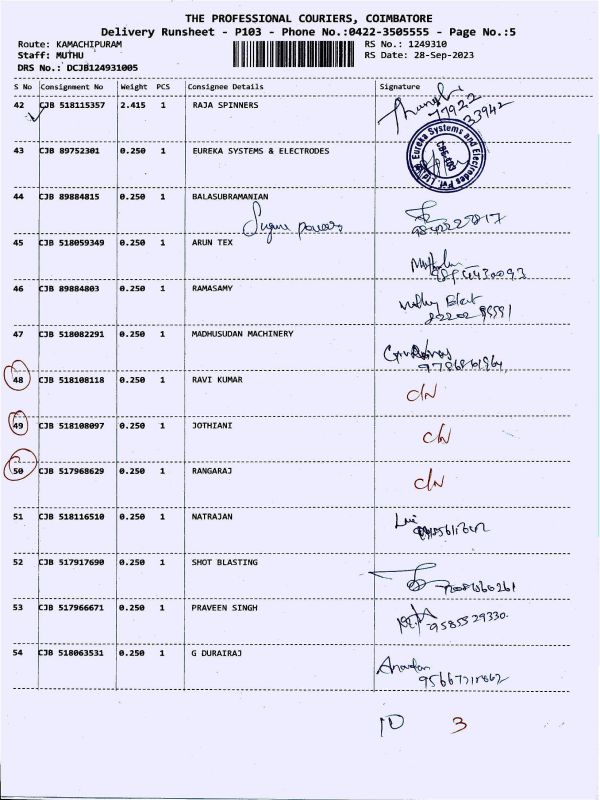 THE PROFESSIONAL COURIERS, COIMBATORE
Delivery Runsheet - P103 - Phone No.:0422-3505555 - Page No.:5
Route: KAMACHIPURAM RS No.: 1249310
Staff: MUTHU RS Date: 28-Sep-2023
DRS No.: DCJB124931005
S No Consignment No Weight PCS Consignee Details Signature
42 CJB 518115357 2.415 1 RAJA SPINNERS
77922
33942
43 CJB 89752301 0.250 1 EUREKA SYSTEMS & ELECTRODES
Eureka Systems and Electrodes Pvt. Ltd
44 CJB 89884815 0.250 1 BALASUBRAMANIAN
45 CJB 518059349 0.250 1 ARUN TEX
46 CJB 89884803 0.250 1 RAMASAMY
47 CJB 518082291 0.250 1 MADHUSUDAN MACHINERY
48 CJB 518108118 0.250 1 RAVI KUMAR
49 CJB 518108097 0.250 1 JOTHIANI
50 CJB 517968629 0.250 1 RANGARAJ
51 CJB 518116510 0.250 1 NATRAJAN
52 CJB 517917690 0.250 1 SHOT BLASTING
53 CJB 517966671 0.250 1 PRAVEEN SINGH
9585529330
54 CJB 518063531 0.250 1 G DURAIRAJ
10 3